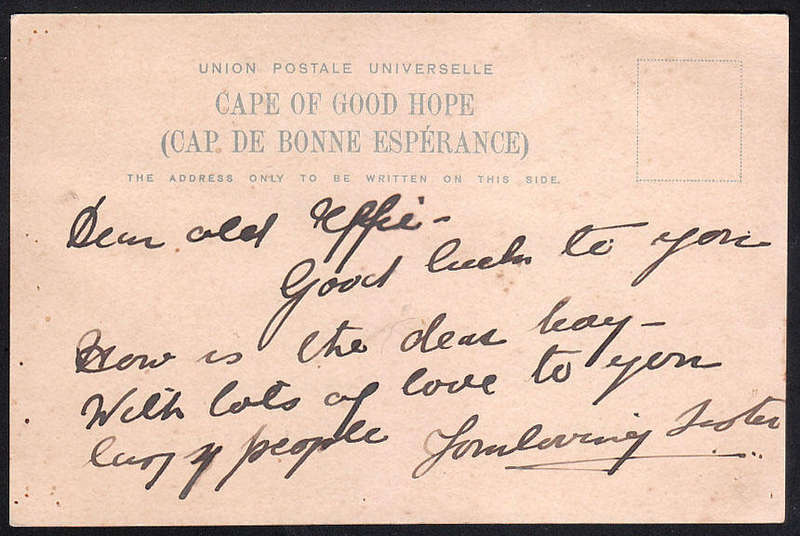 UNION POSTALE UNIVERSELLE
CAPE OF GOOD HOPE
(CAP. DE BONNE ESPÉRANCE)
THE ADDRESS ONLY TO BE WRITTEN ON THIS SIDE.
Dear old Effie -
Good luck to you
How is the dear bay -
With lots of love to you
lazy people Your loving Sister